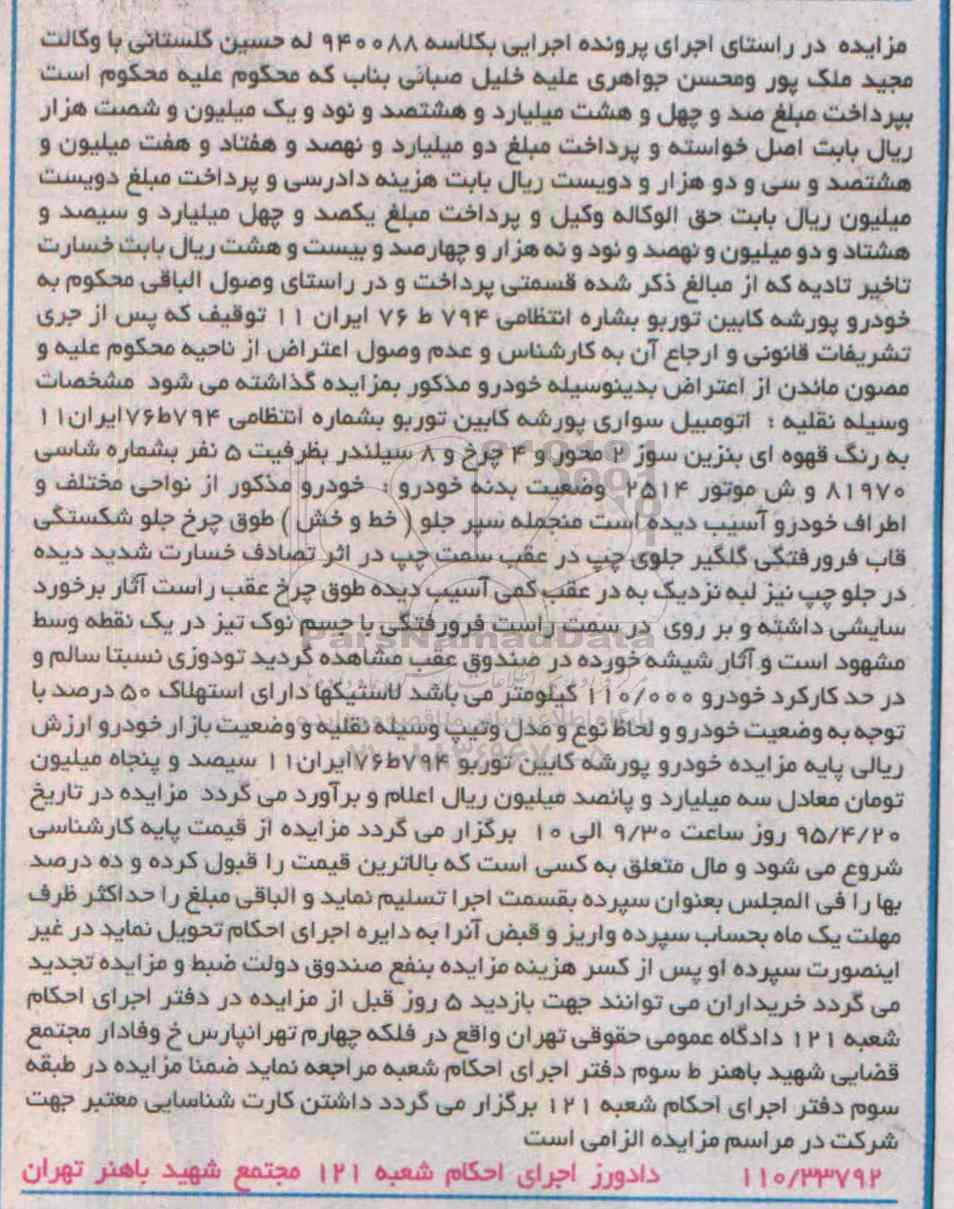 مزایده در راستای اجرای پرونده اجرایی بکلاسه ۹۴۰۰۸۸ له حسین گلستانی با وکالت
مجید ملک پور ومحسن جواهری علیه خلیل صبائی بناب که محکوم علیه محکوم است
بپرداخت مبلغ صد و چهل و هشت میلیارد و هشتصد و نود و یک میلیون و شصت هزار
ریال بابت اصل خواسته و پرداخت مبلغ دو میلیارد و نهصد و هفتاد و هفت میلیون و
هشتصد و سی و دو هزار و دویست ریال بابت هزینه دادرسی و پرداخت مبلغ دویست
میلیون ریال بابت حق الوکاله وکیل و پرداخت مبلغ یکصد و چهل میلیارد و سیصد و
هشتاد و دو میلیون و نهصد و نود و نه هزار و چهارصد و بیست و هشت ریال بابت خسارت
تاخیر تادیه که از مبالغ ذکر شده قسمتی پرداخت و در راستای وصول الباقی محکوم به
خودرو پورشه کابین توربو بشاره انتظامی ۷۹۴ ط ۷۶ ایران ۱۱ توقیف که پس از جری
تشریفات قانونی و ارجاع آن به کارشناس و عدم وصول اعتراض از ناحیه محکوم علیه و
مصون ماندن از اعتراض بدینوسیله خودرو مذکور بمزایده گذاشته می شود مشخصات
وسیله نقلیه : اتومبیل سواری پورشه کابین توربو بشماره انتظامی ۷۹۴ط۷۶ایران۱۱
به رنگ قهوه ای بنزین سوز ۲ محور و ۴ چرخ و ۸ سیلندر بظرفیت ۵ نفر بشماره شاسی
۸۱۹۷۰ و ش موتور ۲۵۱۴ وضعیت بدنه خودرو : خودرو مذکور از نواحی مختلف و
اطراف خودرو آسیب دیده است منجمله سپر جلو ( خط و خش ) طوق چرخ جلو شکستگی
قاب فرورفتگی گلگیر جلوی چپ در عقب سمت چپ در اثر تصادف خسارت شدید دیده
در جلو چپ نیز لبه نزدیک به در عقب کمی آسیب دیده طوق چرخ عقب راست آثار برخورد
سایشی داشته و بر روی در سمت راست فرورفتگی با جسم نوک تیز در یک نقطه وسط
ParsNamadData
مشهود است و آثار شیشه خورده در صندوق عقب مشاهده گردید تودوزی نسبتا سالم و
در حد کارکرد خودرو ۱۱۰/۰۰۰ کیلومتر می باشد لاستیکها دارای استهلاک ۵۰ درصد با
توجه به وضعیت خودرو و لحاظ نوع و مدل وتیپ وسیله نقلیه و وضعیت بازار خودرو ارزش
ریالی پایه مزایده خودرو پورشه کابین توربو ۷۹۴ط۷۶ایران۱۱ سیصد و پنجاه میلیون
تومان معادل سه میلیارد و پانصد میلیون ریال اعلام و برآورد می گردد مزایده در تاریخ
۹۵/۴/۲۰ روز ساعت ۹/۳۰ الی ۱۰ برگزار می گردد مزایده از قیمت پایه کارشناسی
شروع می شود و مال متعلق به کسی است که بالاترین قیمت را قبول کرده و ده درصد
بها را فی المجلس بعنوان سپرده بقسمت اجرا تسلیم نماید و الباقی مبلغ را حداکثر ظرف
مهلت یک ماه بحساب سپرده واریز و قبض آنرا به دایره اجرای احکام تحویل نماید در غیر
اینصورت سپرده او پس از کسر هزینه مزایده بنفع صندوق دولت ضبط و مزایده تجدید
می گردد خریداران می توانند جهت بازدید ۵ روز قبل از مزایده در دفتر اجرای احکام
شعبه ۱۲۱ دادگاه عمومی حقوقی تهران واقع در فلکه چهارم تهرانپارس خ وفادار مجتمع
قضایی شهید باهنر ط سوم دفتر اجرای احکام شعبه مراجعه نماید ضمنا مزایده در طبقه
سوم دفتر اجرای احکام شعبه ۱۲۱ برگزار می گردد داشتن کارت شناسایی معتبر جهت
شرکت در مراسم مزایده الزامی است
۱۱۰/۳۳۷۹۲ دادورز اجرای احکام شعبه ۱۲۱ مجتمع شهید باهنر تهران